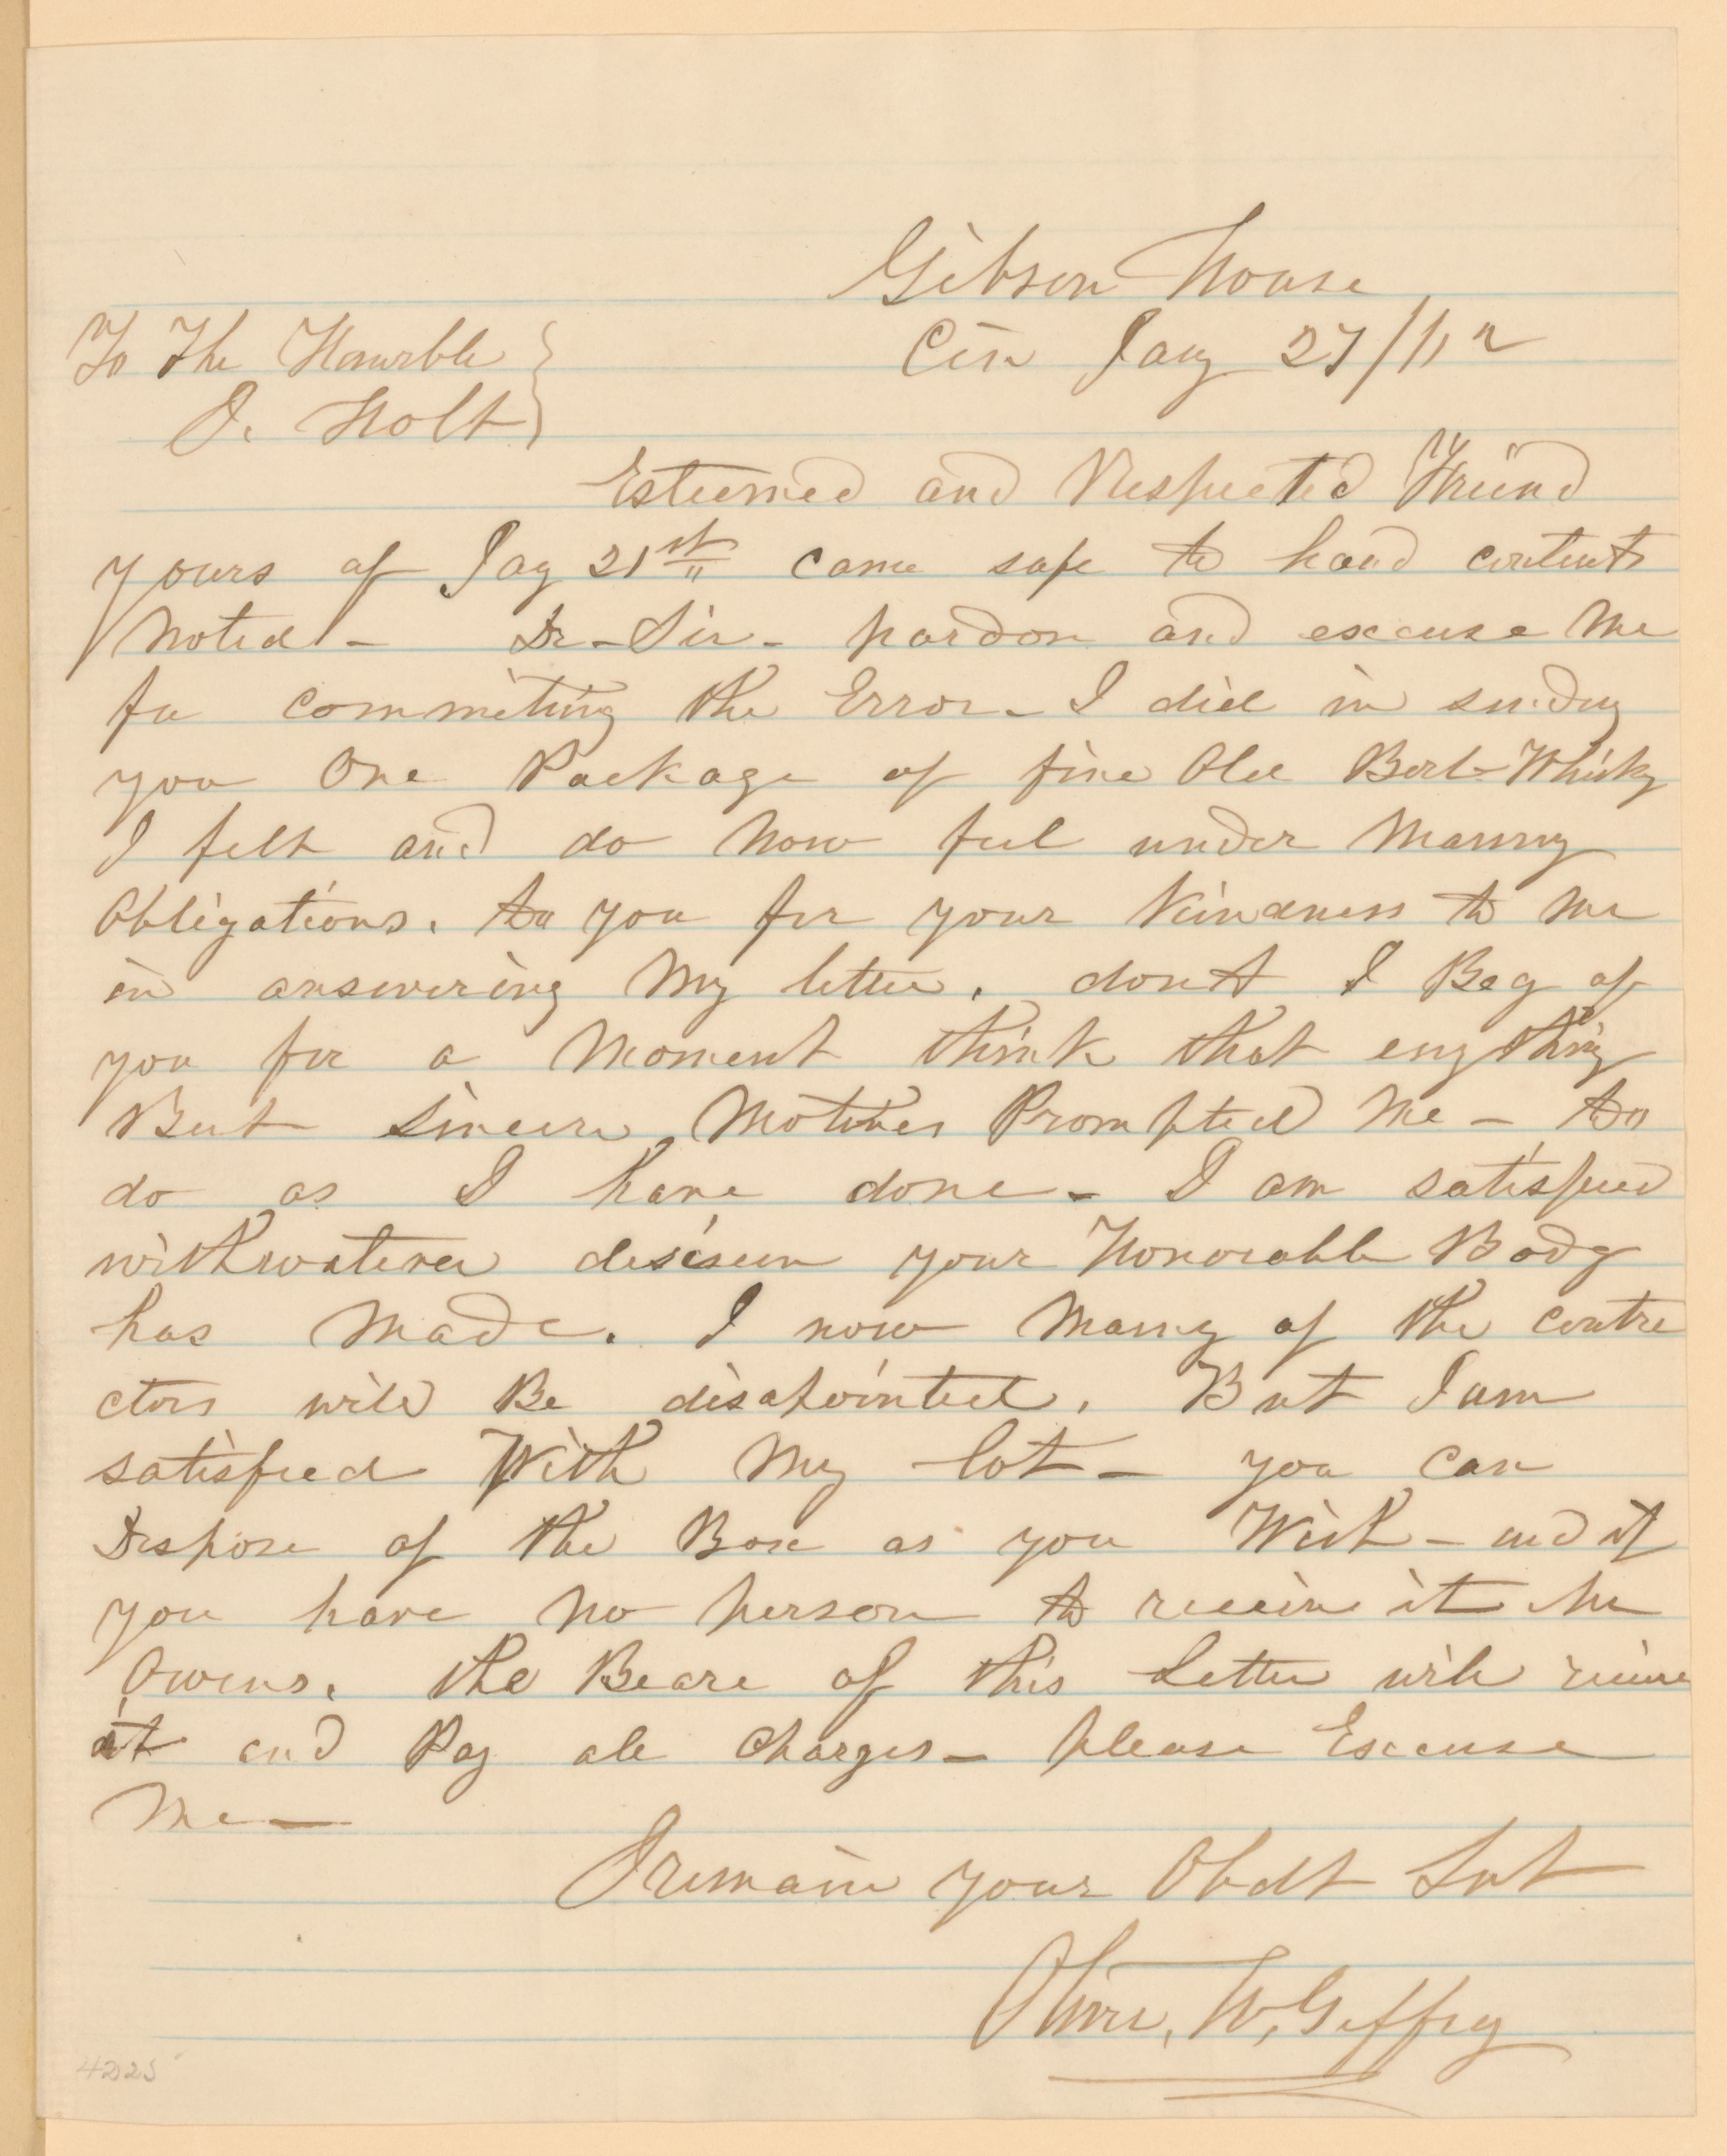 Gibson House
Cin Jany 27/62
To The Honrble
J. Holt
Esteemed and Respected Friend
yours of Jay 21st came safe to hand contents
Noted - Dr - Sir - pardon and excuse Me
for commiting the Error - I did in sending
you One Package of fine Old Borb Whisky
I felt and do now feel under Manny
Obligations. to you for your Kindness to me
in answering My letter. dont I Beg of
you for a Moment think that enything
But sincere Motives Prompted Me - to
do as I have done - I am satisfied
withwatever desiseon your Honorable Body
has Made. I now Manny of the contra
ctors will Be disapointed. But I am
satisfied With My lot - you can
Dispose of the Box as you Wish - and if
you have no person to receive it Mr
Owens. the Beare of this Letter will receive
it and Pay all Charges - please Excuse
Me -
I remain your Obdt Svt
Oliver. W. Geffrey
4225